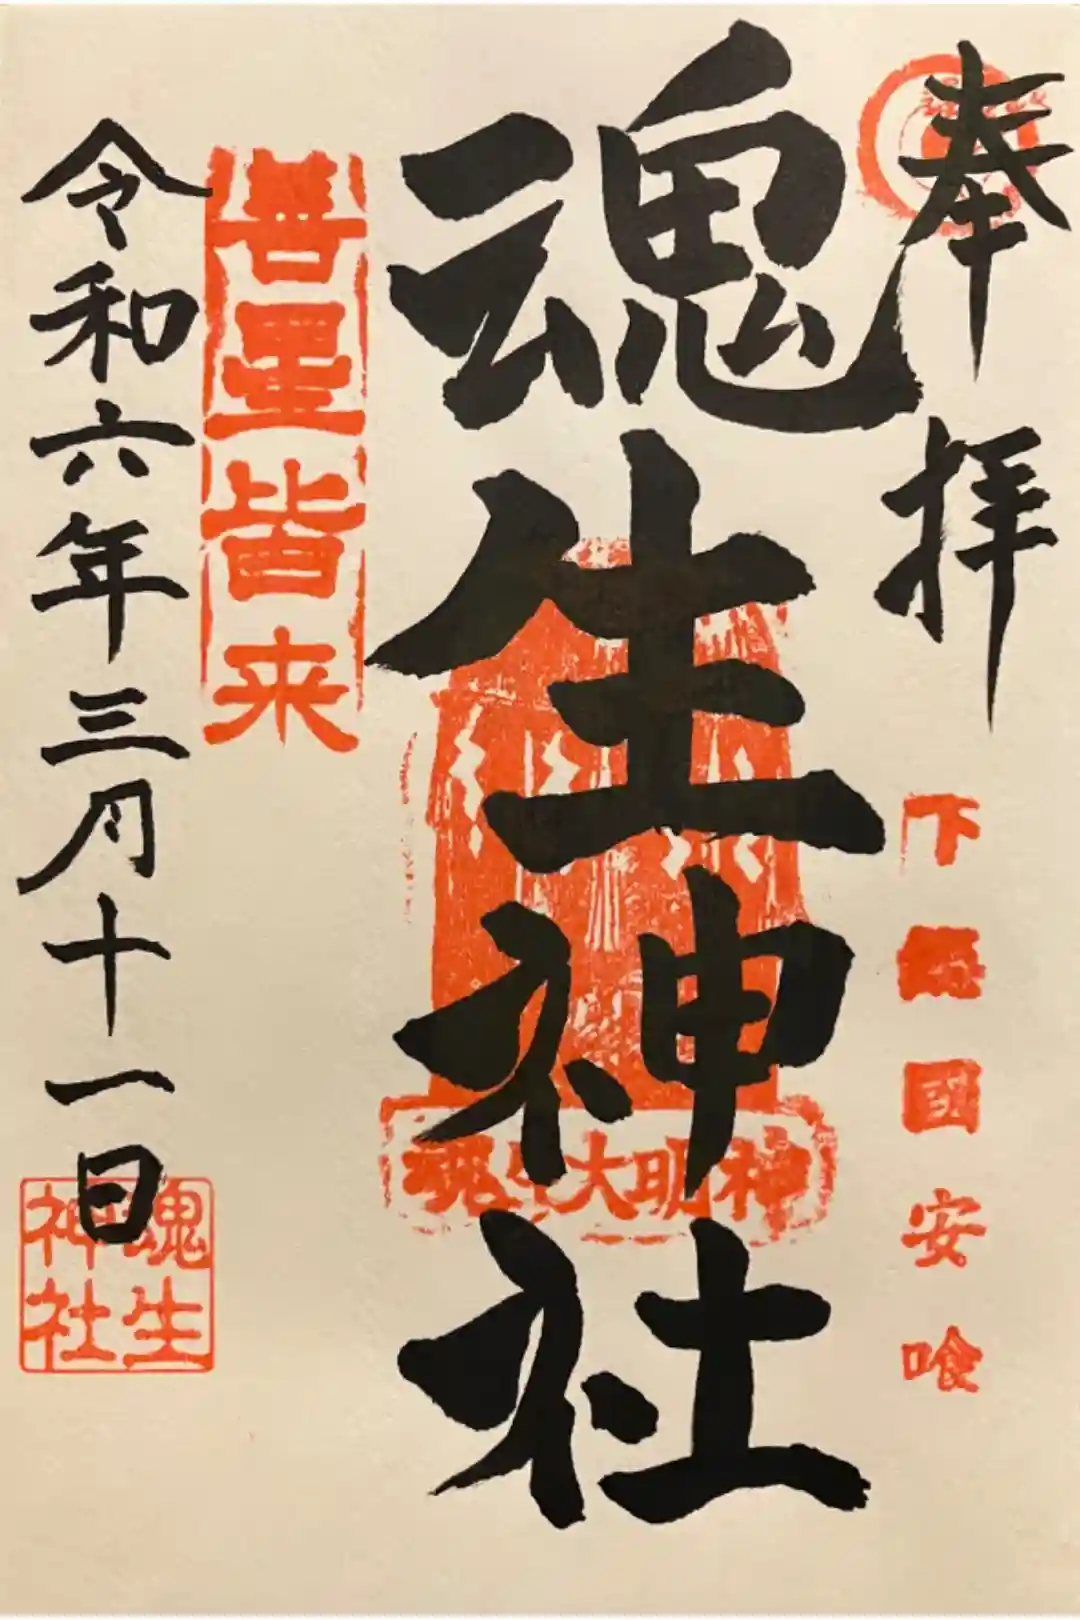 奉拝
下総國安喰
魂生神社
神明大生魂
善星皆来
令和六年三月十一日
魂生
神社